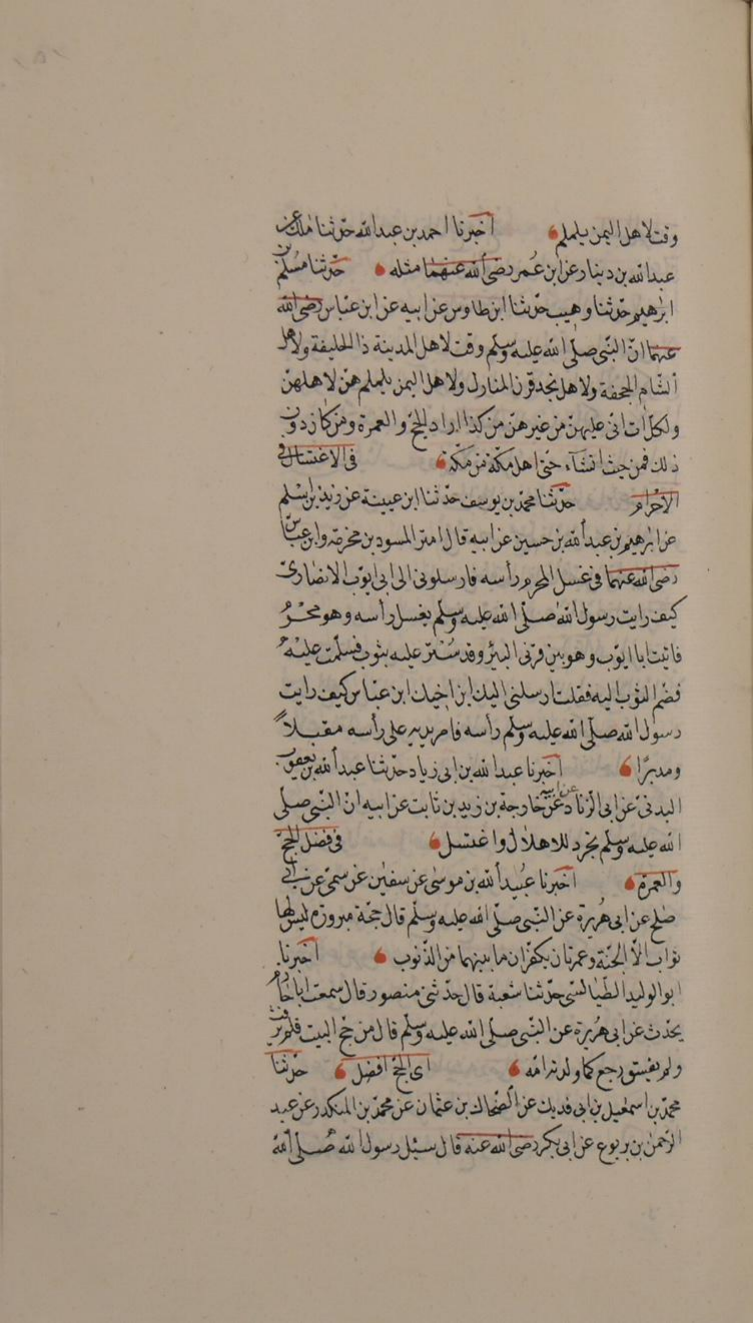 وقت لاهل اليمن يلملم اخبرنا احمد بن عبد الله حدثنا ملك عن
عبد الله بن دينار عن ابن عمر رضى الله عنهما مثله حدثنا مسلم بن
ابرهيم حدثنا وهيب حدثنا ابن طاوس عن ابيه عن ابن عباس رضى الله
عنهما انّ النبى صلى الله عليه وسلم وقت لاهل المدينة ذا الحليفة ولاهل
الشام الجحفة ولاهل نجد قرن المنازل ولاهل اليمن يلملم هنّ لاهلهنّ
ولكلّ ات اتى عليهنّ من غيرهنّ من كذا اراد الحجّ والعمرة ومن كان دون
ذلك فمن حيث انشاء حتى اهل مكة من مكة فى الاغتسال فى
الاحرام حدثنا محمد بن يوسف حدثنا ابن عيينة عن زيد بن اسلم
عن ابرهيم بن عبد الله بن حسين عن ابيه قال امترا المسور بن مخرمة وابن عباس
رضى الله عنهما فى غسل المحرم رأسه فارسلونى الى ابى ايوب الانصارى
كيف رايت رسول الله صلى الله عليه وسلم يغسل رأسه وهو محرم
فاتيت ابا ايوب وهو بين قرنى البئر وقد ستر عليه بثوب فسلمت عليه
فضم الثوب اليه فقلت ارسلنى اليك ابن اخيك ابن عباس كيف رايت
رسول الله صلى الله عليه وسلم رأسه فامر يديه على رأسه مقبلاً
ومدبرًا اخبرنا عبد الله بن ابى زياد حدثنا عبد الله بن يعقوب
المدنى عن ابى الزناد عن ابيه عن خارجة بن زيد بن ثابت عن ابيه انّ النبى صلى
الله عليه وسلم تجرد للاهلال واغتسل فى فضل الحجّ
والعمرة اخبرنا عبيد الله بن موسى عن سفين عن سمى عن ابى
صلح عن ابى هريرة عن النبى صلى الله عليه وسلم قال حجة مبرورة ليس لها
ثواب الاّ الجنة وعمرتان يكفران ما بينهما من الذنوب اخبرنا
ابو الوليد الطيالسى حدثنا شعبة قال حدثنى منصور قال سمعت ابا حازم
يحدث عن ابى هريرة عن النبى صلى الله عليه وسلم قال من حج البيت فلم يرفث
ولم يفسق رجع كما ولدته امّه اى الحجّ افضل حدثنا
محمد بن اسمعيل بن ابى فديك عن الضحاك بن عثمان عن محمد بن المنكدر عن عبد
الرحمن بن يربوع عن ابى بكر رضى الله عنه قال سئل رسول الله صلى الله